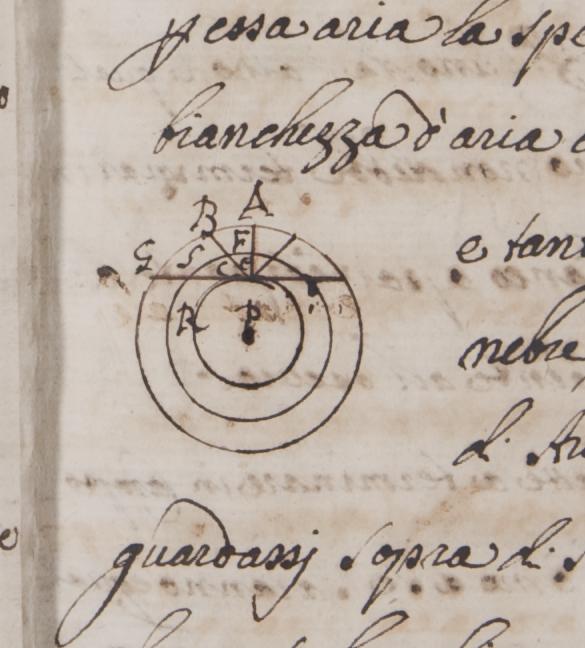 pessa aria la spe
bianchezza d'aria
A
B F
G S
C e
R P
e tan
nebre
d. Au
guardassj sopra d. s